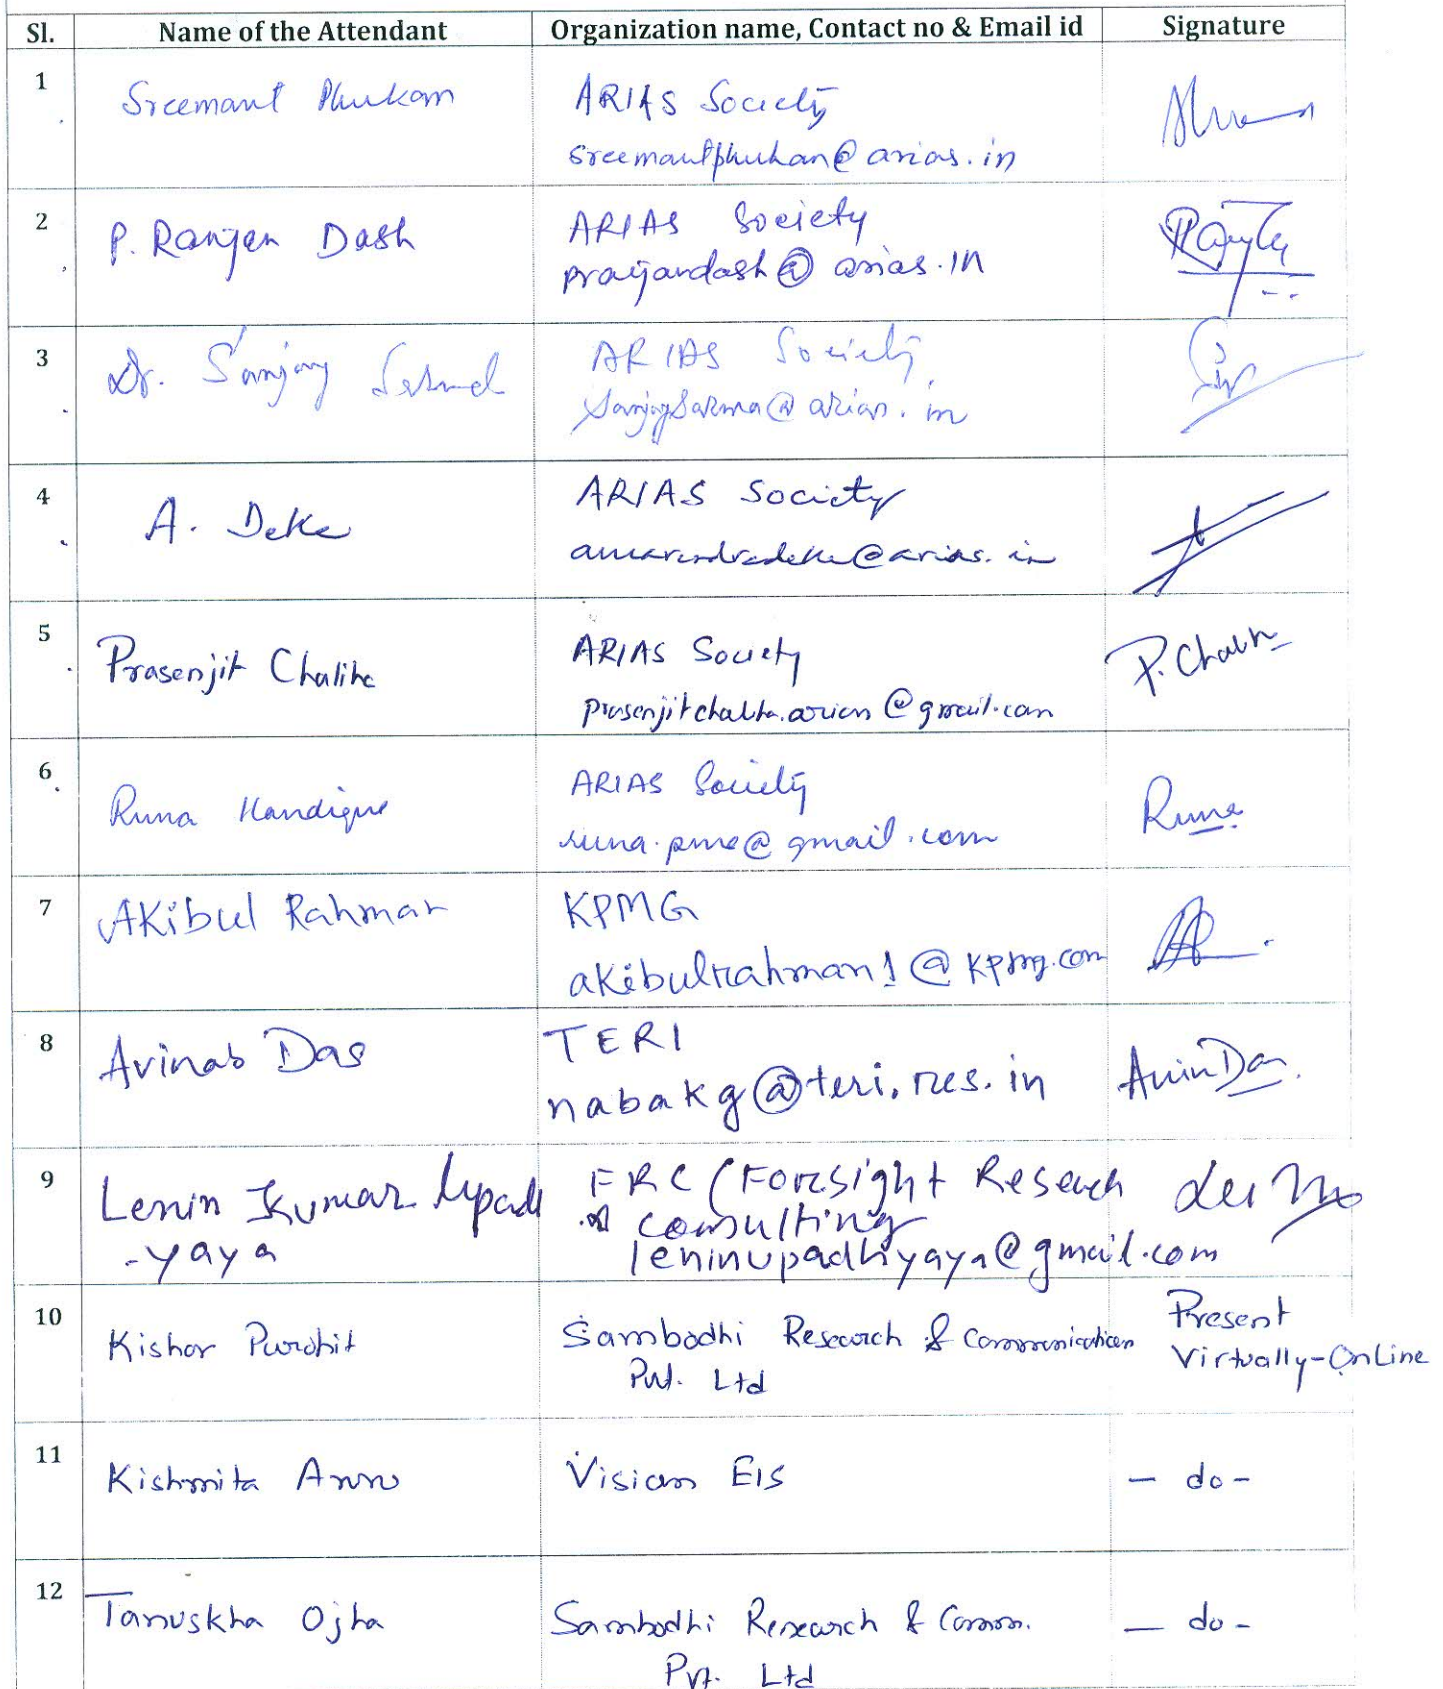 Sl. Name of the Attendant Organization name, Contact no & Email id Signature
1 Sreemant Phukan ARIAS Society
sreemantphukan@arias.in
2 P. Ranjan Dash ARIAS Society
pranjandash@arias.IN
3 Dr. Sanjay Sarma ARIAS Society
sanjaysarma@arias.in
4 A. Deka ARIAS Society
amarendradeka@arias.in
5 Prasenjit Chaliha ARIAS Society P. Chaliha
prasenjitchaliha.arias@gmail.com
6 Runa Handique ARIAS Society Runa
runa.pme@gmail.com
7 Akibul Rahman KPMG
akibulrahman1@kpmg.com
8 Avinab Das TERI
nabakg@teri.res.in
9 Lenin Kumar Upadh FRC (Foresight Reseach
-yaya & consulting
leninupadhyaya@gmail.com
10 Kishor Purohit Sambodhi Research & Communication Present
Pvt. Ltd Virtually-OnLine
11 Kishmita Annu Vision EIS - do -
12 Tanuskha Ojha Sambodhi Research & Comm. - do -
Pvt. Ltd